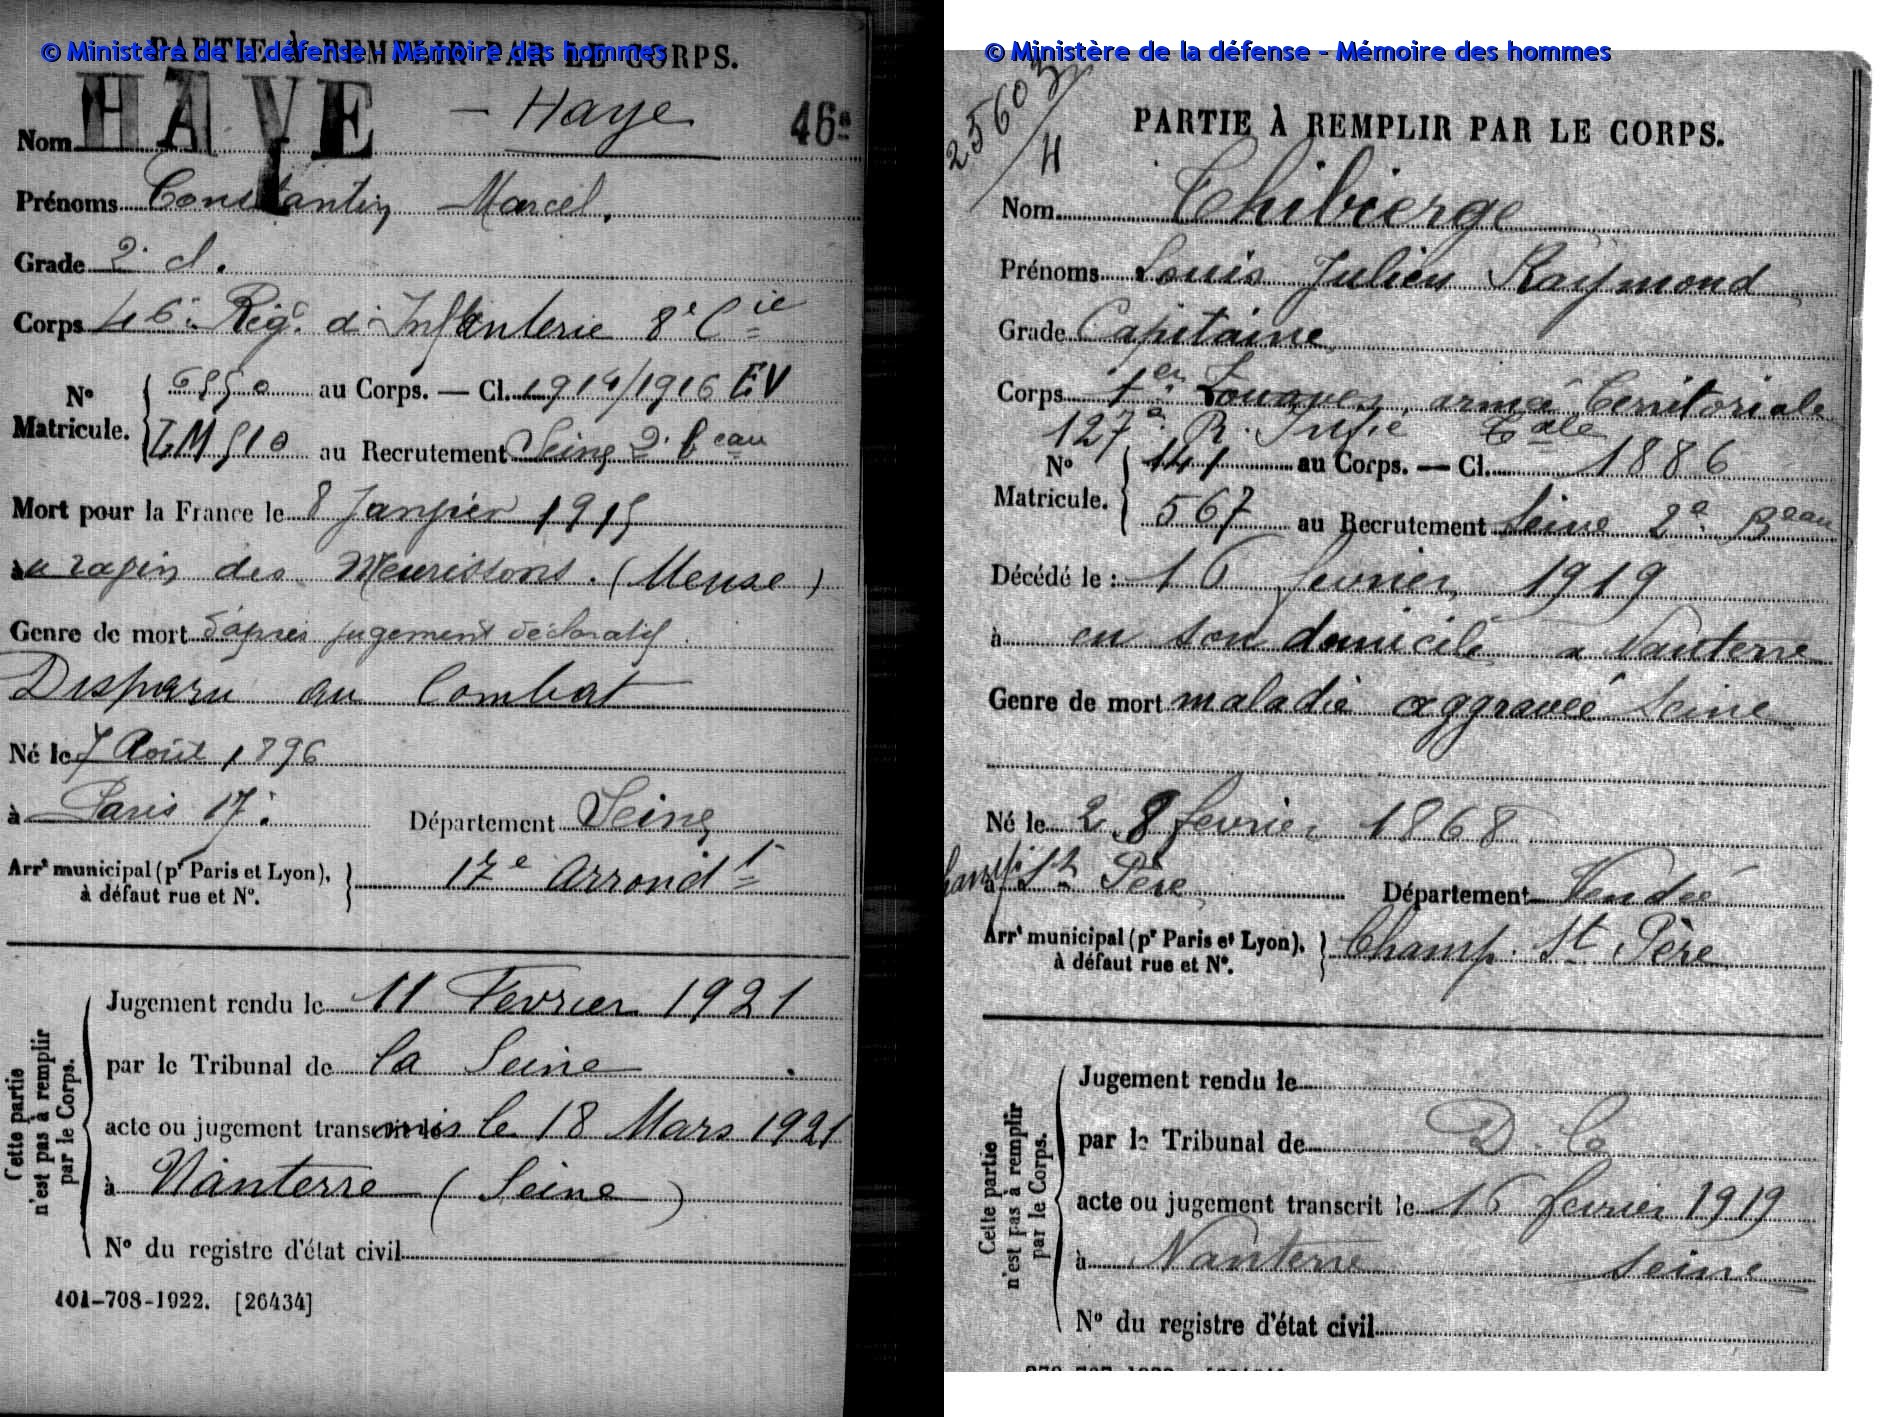 © Ministère de la défense - Mémoire des hommes
PARTIE À REMPLIR PAR LE CORPS.
Nom HAYE - Haye 46e
Prénoms Constantin Marcel.
Grade 2e cl.
Corps 46e Régt d'Infanterie 8e Cie
No Matricule. 6550 au Corps. — Cl. 1914/1916 EV
LM 510 au Recrutement Seine 2e Beau
Mort pour la France le 8 Janvier 1915
au ravin des Meurissons. (Meuse)
Genre de mort d'après jugement déclaratif
Disparu au Combat
Né le 7 Août 1896
à Paris 17e Département Seine
Arrt municipal (pr Paris et Lyon), à défaut rue et No. 17e Arrondt
Cette partie n'est pas à remplir par le Corps.
Jugement rendu le 11 Fevrier 1921
par le Tribunal de la Seine.
acte ou jugement transmis le 18 Mars 1921
à Nanterre (Seine)
No du registre d'état civil
101-708-1922. [26434]
© Ministère de la défense - Mémoire des hommes
25603/4
PARTIE À REMPLIR PAR LE CORPS.
Nom Thibierge
Prénoms Louis Julien Raymond
Grade Capitaine
Corps 1er Zouaves, armée territoriale
127e R. Infie Tale
No Matricule. 141 au Corps. — Cl. 1886
567 au Recrutement Seine 2e Beau
Décédé le : 16 fevrier 1919
à en son domicile a Nanterre
Genre de mort maladie aggravée Seine
Né le 28 fevrier 1868
à Champ St Père Département Vendée
Arrt municipal (pr Paris et Lyon), à défaut rue et No. Champ. St Père
Cette partie n'est pas à remplir par le Corps.
Jugement rendu le
par le Tribunal de D. C
acte ou jugement transcrit le 16 fevrier 1919
à Nanterre Seine
No du registre d'état civil